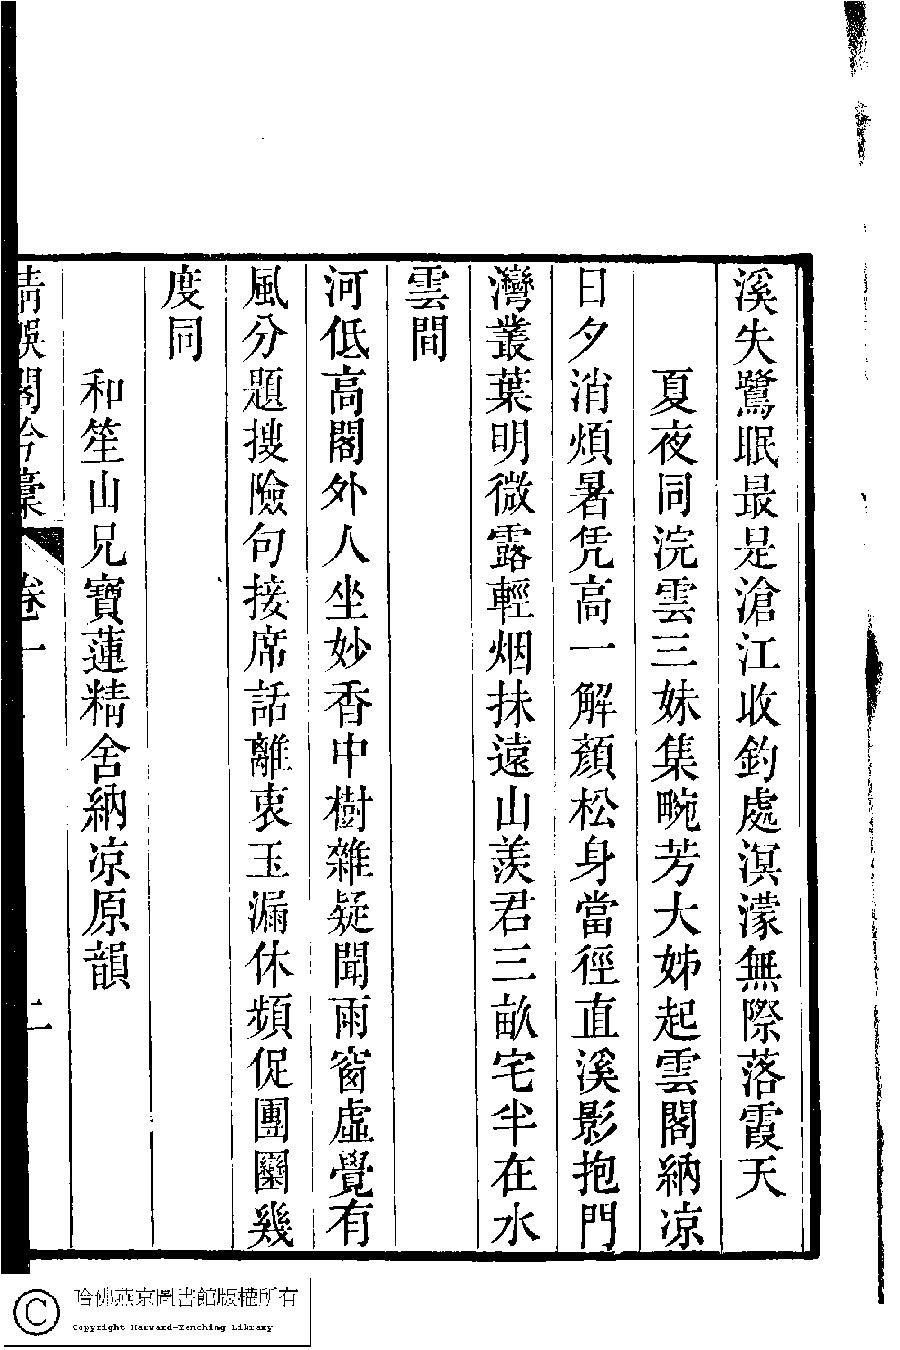 溪失鷺眠最是滄江收釣處溟濛無際落霞天
夏夜同浣雲三妹集畹芳大姊起雲閣納凉
日夕消煩暑凭高一解顏松身當徑直溪影抱門
灣叢葉明微露輕烟抹遠山羨君三畝宅半在水
雲間
河低高閣外人坐妙香中樹雜疑聞雨窗虛覺有
風分題搜險句接席話離衷玉漏休頻促團圞幾
度同
和笙山兄寶蓮精舍納凉原韻
清娛閣吟藁 卷一
哈佛燕京圖書館版權所有
Copyright Harvard-Yenching Library